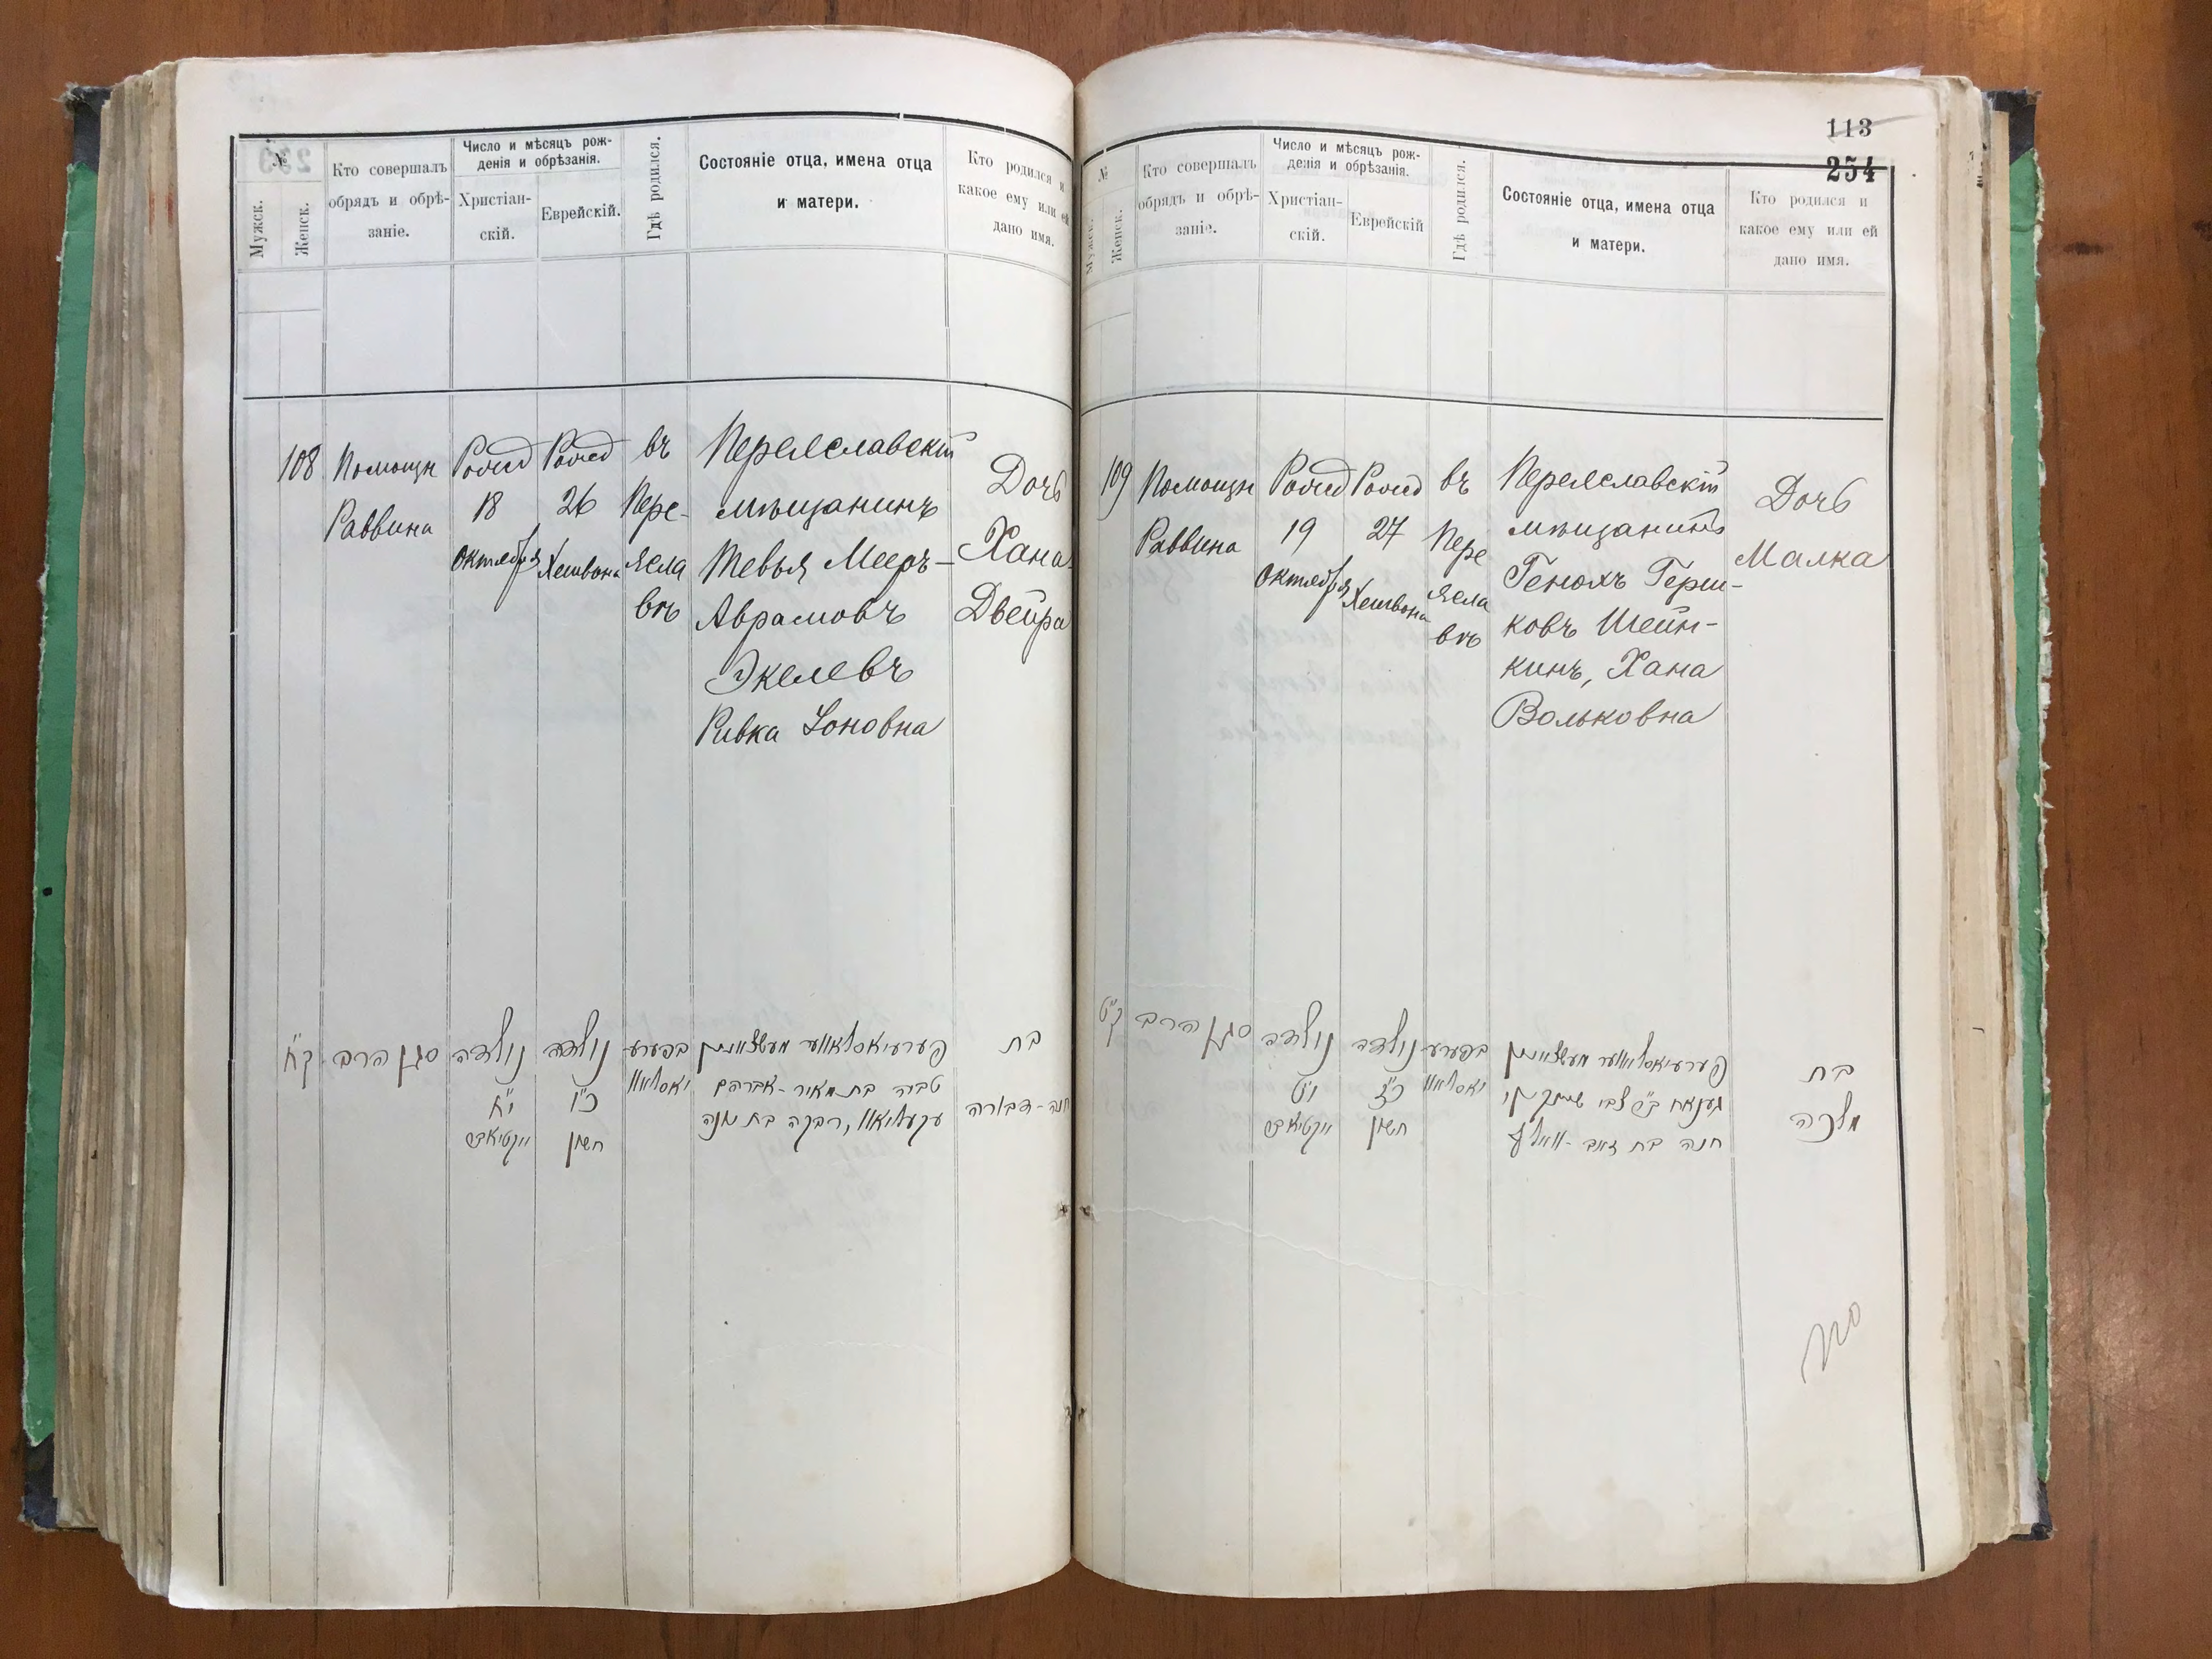 №
Мужск.
Женск.
Кто совершалъ
обрядъ и обрѣ-
заніе.
Число и мѣсяцъ рож-
денія и обрѣзанія.
Христіан-
скій.
Еврейскій.
Гдѣ родился.
Состояніе отца, имена отца
и матери.
Кто родился и
какое ему или ей
дано имя.
108
Помощн
Раввина
18
Октября
26
Хешвона
въ
Пере-
ясла
вѣ
Переяславскій
мѣщанинъ
Тевья Мееръ-
Аврамовъ
Экелевъ
Ривка Іоновна
Дочь
Хана-
Двейра
ק״ח
סגן הרב
נולדה
י״ח
אקטיאבר
נולדה
כ״ו
חשון
בפערע
יאסלאוו
פערעיאסלאווער מעשצאנין
טביה בת מאיר-אברהם
עקעליאוו, רבקה בת יונה
בת
חנה-דבורה
113
254
№
Мужск.
Женск.
Кто совершалъ
обрядъ и обрѣ-
заніе.
Число и мѣсяцъ рож-
денія и обрѣзанія.
Христіан-
скій.
Еврейскій
Гдѣ родился.
Состояніе отца, имена отца
и матери.
Кто родился и
какое ему или ей
дано имя.
109
Помощн
Раввина
19
Октября
27
Хешвона
въ
Пере
ясла
вѣ
Переяславскій
мѣщанинъ
Генохъ Герш-
ковъ Шейн-
кинъ, Хана
Вольковна
Дочь
Малка
ק״ט
סגן הרב
נולדה
י״ט
אקטיאבר
נולדה
כ״ז
חשון
בפערע
יאסלאוו
פערעיאסלאווער מעשצאנין
גענאח ב״ר צבי שיינקין
חנה בת זאב-וואלף
בת
מלכה